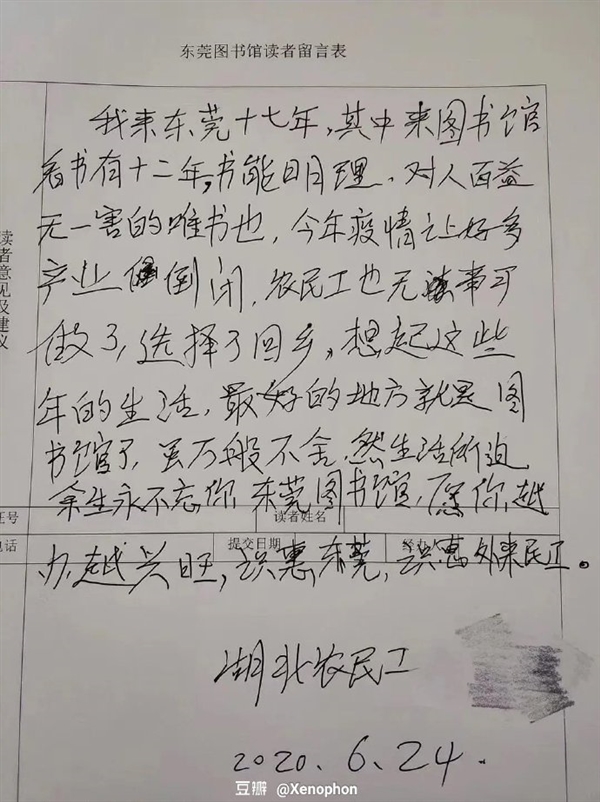 东莞图书馆读者留言表
读者意见及建议
我来东莞十七年,其中来图书馆
看书有十二年,书能明理、对人百益
无一害的唯书也,今年疫情让好多
产业倒闭,农民工也无事可
做了,选择了回乡。想起这些
年的生活,最好的地方就是图
书馆了,虽万般不舍,然生活所迫
余生永不忘你,东莞图书馆,愿你越
号 读者姓名
电话 提交日期 经办
办越兴旺,识惠东莞,识惠外来民工。
湖北农民工
2020.6.24.
豆瓣 @Xenophon